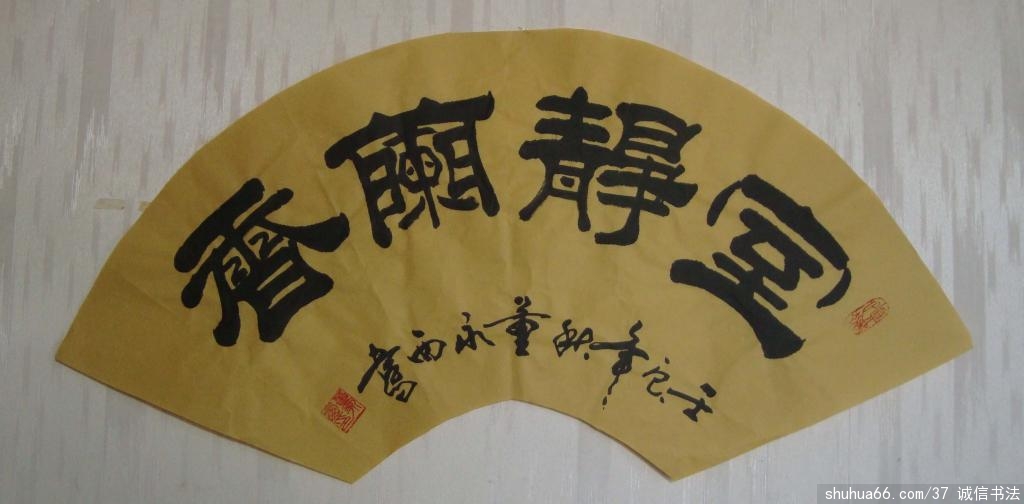 室靜蘭香
壬辰年秋董永西書
shuhua66.com/37 诚信书法